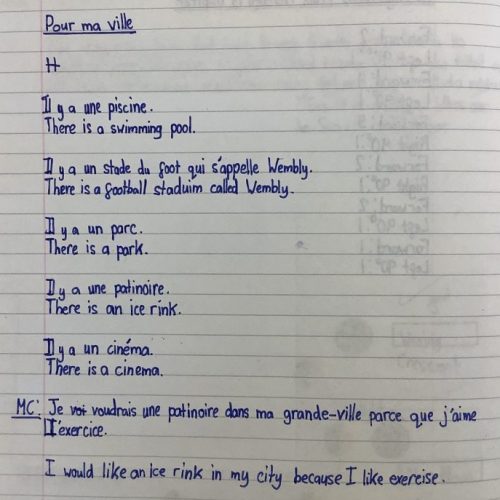 Pour ma ville
H
Il y a une piscine.
There is a swimming pool.
Il y a un stade du foot qui s'appelle Wembly.
There is a football staduim called Wembly.
Il y a un parc.
There is a park.
Il y a une patinoire.
There is an ice rink.
Il y a un cinéma.
There is a cinema.
MC: Je voi voudrais une patinoire dans ma grande-ville parce que j'aime
l'exercice.
I would like an ice rink in my city because I like exercise.